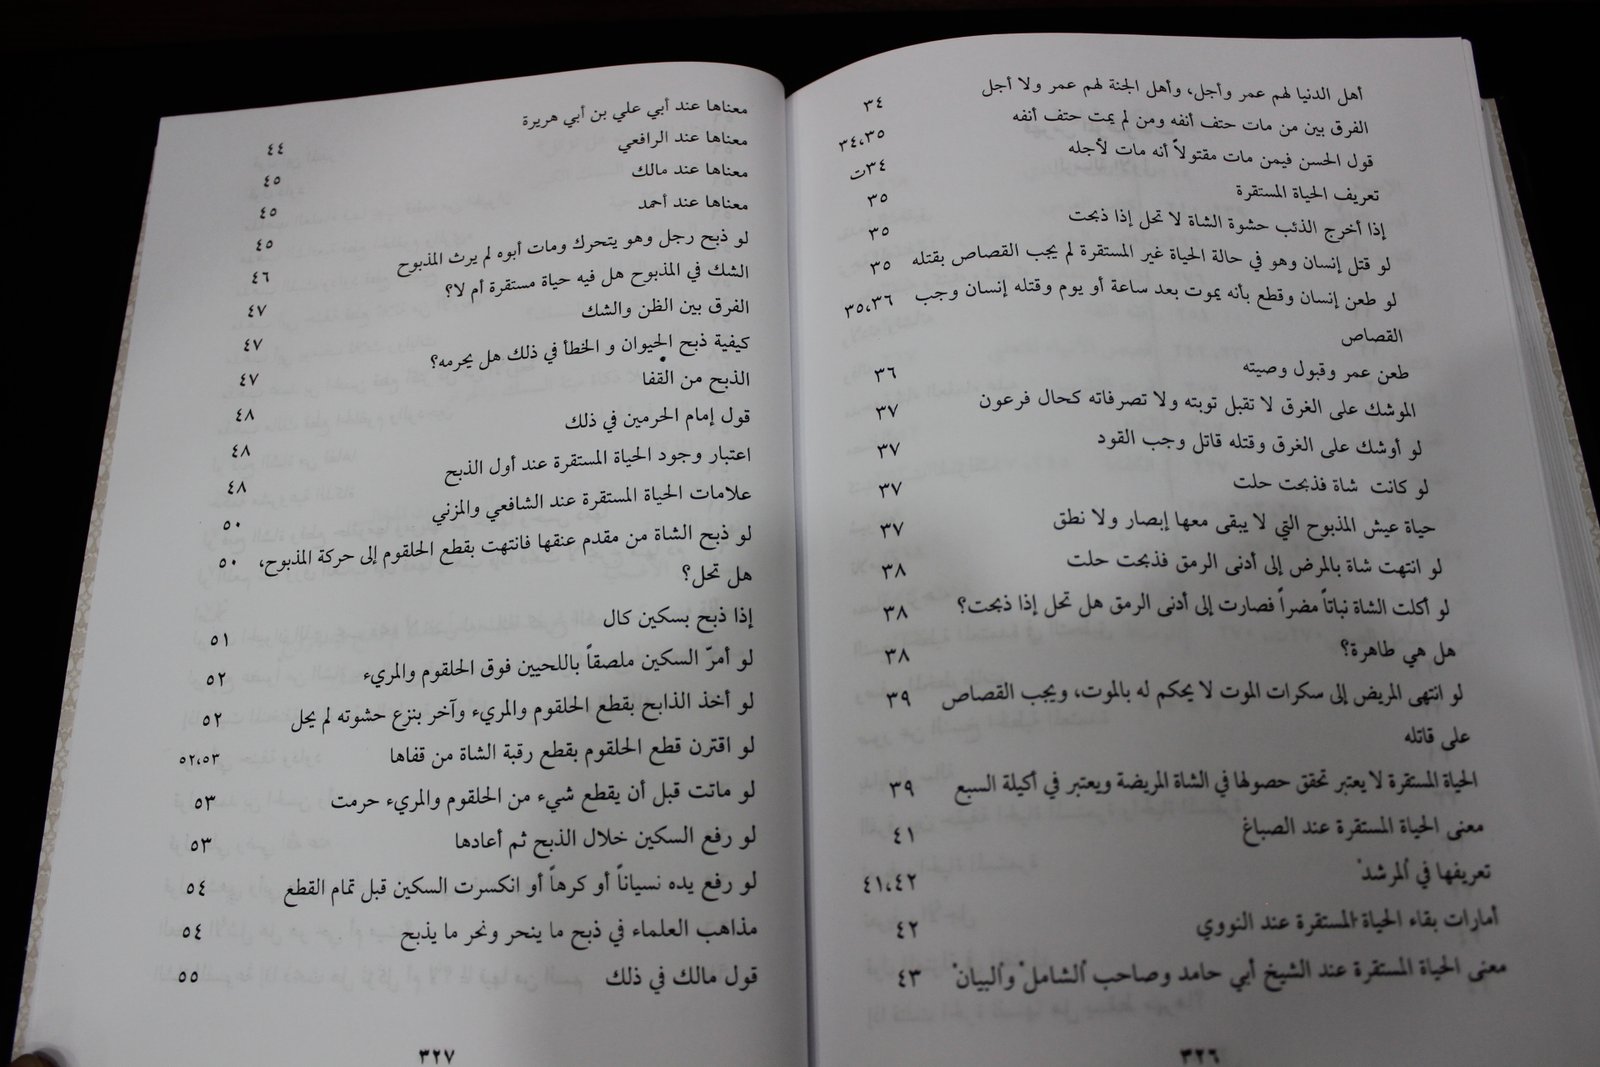 أهل الدنيا لهم عمر وأجل، وأهل الجنة لهم عمر ولا أجل ٣٤
الفرق بين من مات حتف أنفه ومن لم يمت حتف أنفه ٣٤،٣٥
قول الحسن فيمن مات مقتولاً أنه مات لأجله ٣٤ت
تعريف الحياة المستقرة ٣٥
إذا أخرج الذئب حشوة الشاة لا تحل إذا ذبحت ٣٥
لو قتل إنسان وهو في حالة الحياة غير المستقرة لم يجب القصاص بقتله ٣٥
لو طعن إنسان وقطع بأنه يموت بعد ساعة أو يوم وقتله إنسان وجب ٣٥،٣٦
القصاص
طعن عمر وقبول وصيته ٣٦
الموشك على الغرق لا تقبل توبته ولا تصرفاته كحال فرعون ٣٧
لو أوشك على الغرق وقتله قاتل وجب القود ٣٧
لو كانت شاة فذبحت حلت ٣٧
حياة عيش المذبوح التي لا يبقى معها إبصار ولا نطق ٣٧
لو انتهت شاة بالمرض إلى أدنى الرمق فذبحت حلت ٣٨
لو أكلت الشاة نباتاً مضراً فصارت إلى أدنى الرمق هل تحل إذا ذبحت؟ ٣٨
هل هي طاهرة؟ ٣٨
لو انتهى المريض إلى سكرات الموت لا يحكم له بالموت، ويجب القصاص ٣٩
على قاتله
الحياة المستقرة لا يعتبر تحقق حصولها في الشاة المريضة ويعتبر في أكيلة السبع ٣٩
معنى الحياة المستقرة عند الصباغ ٤١
تعريفها في "المرشد" ٤١،٤٢
أمارات بقاء الحياة المستقرة عند النووي ٤٢
معنى الحياة المستقرة عند الشيخ أبي حامد وصاحب "الشامل" و"البيان" ٤٣
٣٢٦
معناها عند أبي علي بن أبي هريرة
معناها عند الرافعي ٤٤
معناها عند مالك ٤٥
معناها عند أحمد ٤٥
لو ذبح رجل وهو يتحرك ومات أبوه لم يرث المذبوح ٤٥
الشك في المذبوح هل فيه حياة مستقرة أم لا؟ ٤٦
الفرق بين الظن والشك ٤٧
كيفية ذبح الحيوان و الخطأ في ذلك هل يحرمه؟ ٤٧
الذبح من القفا ٤٧
قول إمام الحرمين في ذلك ٤٨
اعتبار وجود الحياة المستقرة عند أول الذبح ٤٨
علامات الحياة المستقرة عند الشافعي والمزني ٤٨
لو ذبح الشاة من مقدم عنقها فانتهت بقطع الحلقوم إلى حركة المذبوح، ٥٠
هل تحل؟ ٥٠
إذا ذبح بسكين كال ٥١
لو أمرّ السكين ملصقاً باللحيين فوق الحلقوم والمريء ٥٢
لو أخذ الذابح بقطع الحلقوم والمريء وآخر بنزع حشوته لم يحل ٥٢
لو اقترن قطع الحلقوم بقطع رقبة الشاة من قفاها ٥٢،٥٣
لو ماتت قبل أن يقطع شيء من الحلقوم والمريء حرمت ٥٣
لو رفع السكين خلال الذبح ثم أعادها ٥٣
لو رفع يده نسياناً أو كرهاً أو انكسرت السكين قبل تمام القطع ٥٤
مذاهب العلماء في ذبح ما ينحر ونحر ما يذبح ٥٤
قول مالك في ذلك ٥٥
٣٢٧